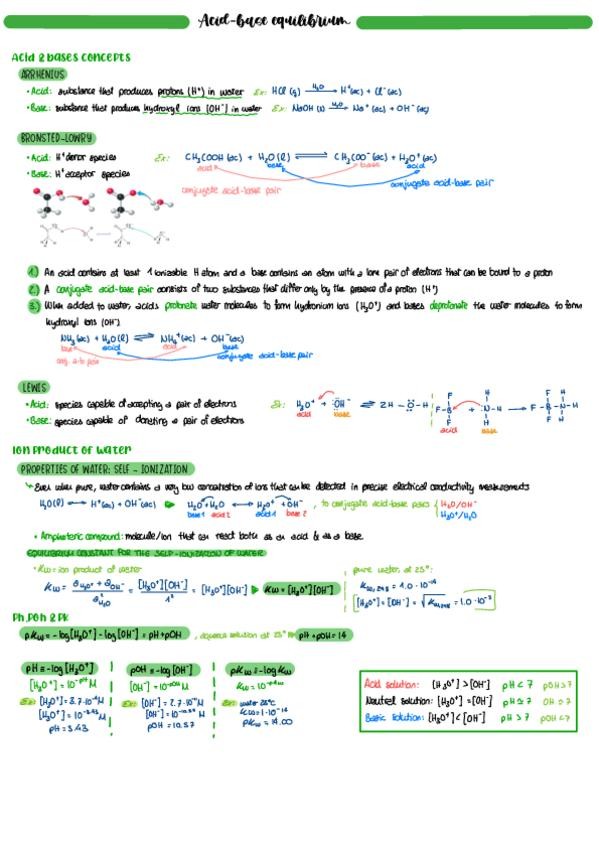 Acid-base equilibrium
Acid & bases concepts
ARRHENIUS
• Acid: substance that produces protons (H⁺) in water Ex: HCl (g) —H₂O→ H⁺(ac) + Cl⁻(ac)
• Base: substance that produces hydroxyl ions [OH⁻] in water Ex: NaOH (s) —H₂O→ Na⁺(ac) + OH⁻(ac)
BRONSTED-LOWRY
• Acid: H⁺ donor species Ex: CH₃COOH (ac) + H₂O (l) ⇌ CH₃COO⁻(ac) + H₃O⁺(ac)
acid base base acid
• Base: H⁺ acceptor species
conjugate acid-base pair
conjugate acid-base pair
1.) An acid contains at least 1 ionizable H atom and a base contains an atom with a lone pair of electrons that can be bound to a proton
2.) A conjugate acid-base pair consists of two substances that differ only by the presence of a proton (H⁺)
3.) When added to water, acids protonate water molecules to form hydronium ions (H₃O⁺) and bases deprotonate the water molecules to form
hydroxyl ions (OH⁻)
NH₃(ac) + H₂O(l) ⇌ NH₄⁺(ac) + OH⁻(ac)
base acid acid base
conj. a-b pair
conjugate acid-base pair
LEWIS
• Acid: species capable of accepting a pair of electrons
• Base: species capable of donating a pair of electrons
Ex: H₃O⁺ + OH⁻ ⇌ 2H-O-H
acid base
F F B F + H N H H → F F B F H N H H
acid base
Ion product of water
PROPERTIES OF WATER: SELF - IONIZATION
Even when pure, water contains a very low concentration of ions that can be detected in precise electrical conductivity measurements
H₂O(l) ⇌ H⁺(ac) + OH⁻(ac) ▶ H₂O + H₂O ⟷ H₃O⁺ + OH⁻, to conjugate acid-base pairs { H₂O/OH⁻
base 1 acid 2 acid 1 base 2 H₃O⁺/H₂O
• Amphoteric compound: molecule/ion that can react both as an acid & as a base.
EQUILIBRIUM CONSTANT FOR THE SELF-IONIZATION OF WATER
• Kw = ion product of water
Kw = a H₃O⁺ + a OH⁻ / a H₂O = [H₃O⁺][OH⁻] / 1² = [H₃O⁺][OH⁻] ▶ Kw = [H₃O⁺][OH⁻]
pure water, at 25°:
Kw,298 = 1.0 · 10⁻¹⁴
[H₃O⁺] = [OH⁻] = √Kw,298 = 1.0 · 10⁻⁷
Ph, Poh & Pk
pKw = -log[H₃O⁺] - log[OH⁻] = pH + pOH , aqueous solution at 25° ▶ pH + pOH = 14
pH = -log[H₃O⁺]
[H₃O⁺] = 10⁻ᵖᴴ M
Ex: [H₃O⁺] = 3.7·10⁻⁴ M
[H₃O⁺] = 10⁻³·⁴³ M
pH = 3.43
pOH = -log[OH⁻]
[OH⁻] = 10⁻ᵖᴼᴴ M
Ex: [OH⁻] = 2.7·10⁻¹¹ M
[OH⁻] = 10⁻¹⁰·⁵⁷ M
pOH = 10.57
pKw = -log Kw
Kw = 10⁻ᵖᴷʷ
Ex: water 25°C
Kw = 1·10⁻¹⁴
pKw = 14.00
Acid solution: [H₃O⁺] > [OH⁻] pH < 7 pOH > 7
Neutral solution: [H₃O⁺] = [OH⁻] pH = 7 OH = 7
Basic solution: [H₃O⁺] < [OH⁻] pH > 7 pOH < 7